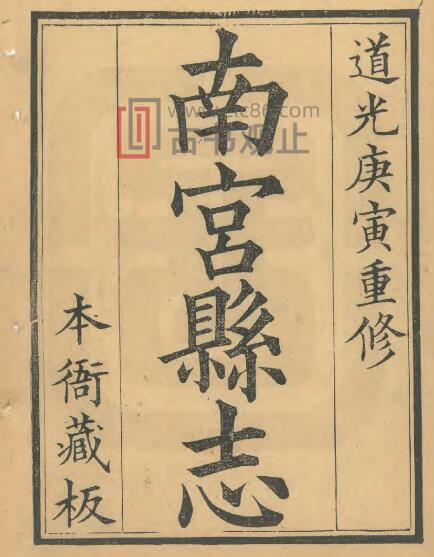 道光庚寅重修
南宮縣志
本衙藏板
古书观止